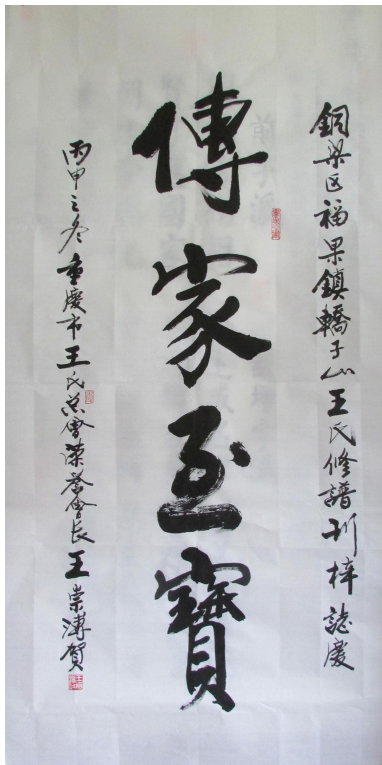 銅梁区福果鎮轎子山王氏修譜刊梓誌慶
傳家至寶
丙申之冬重慶市王氏总會荣誉會长王崇溥賀